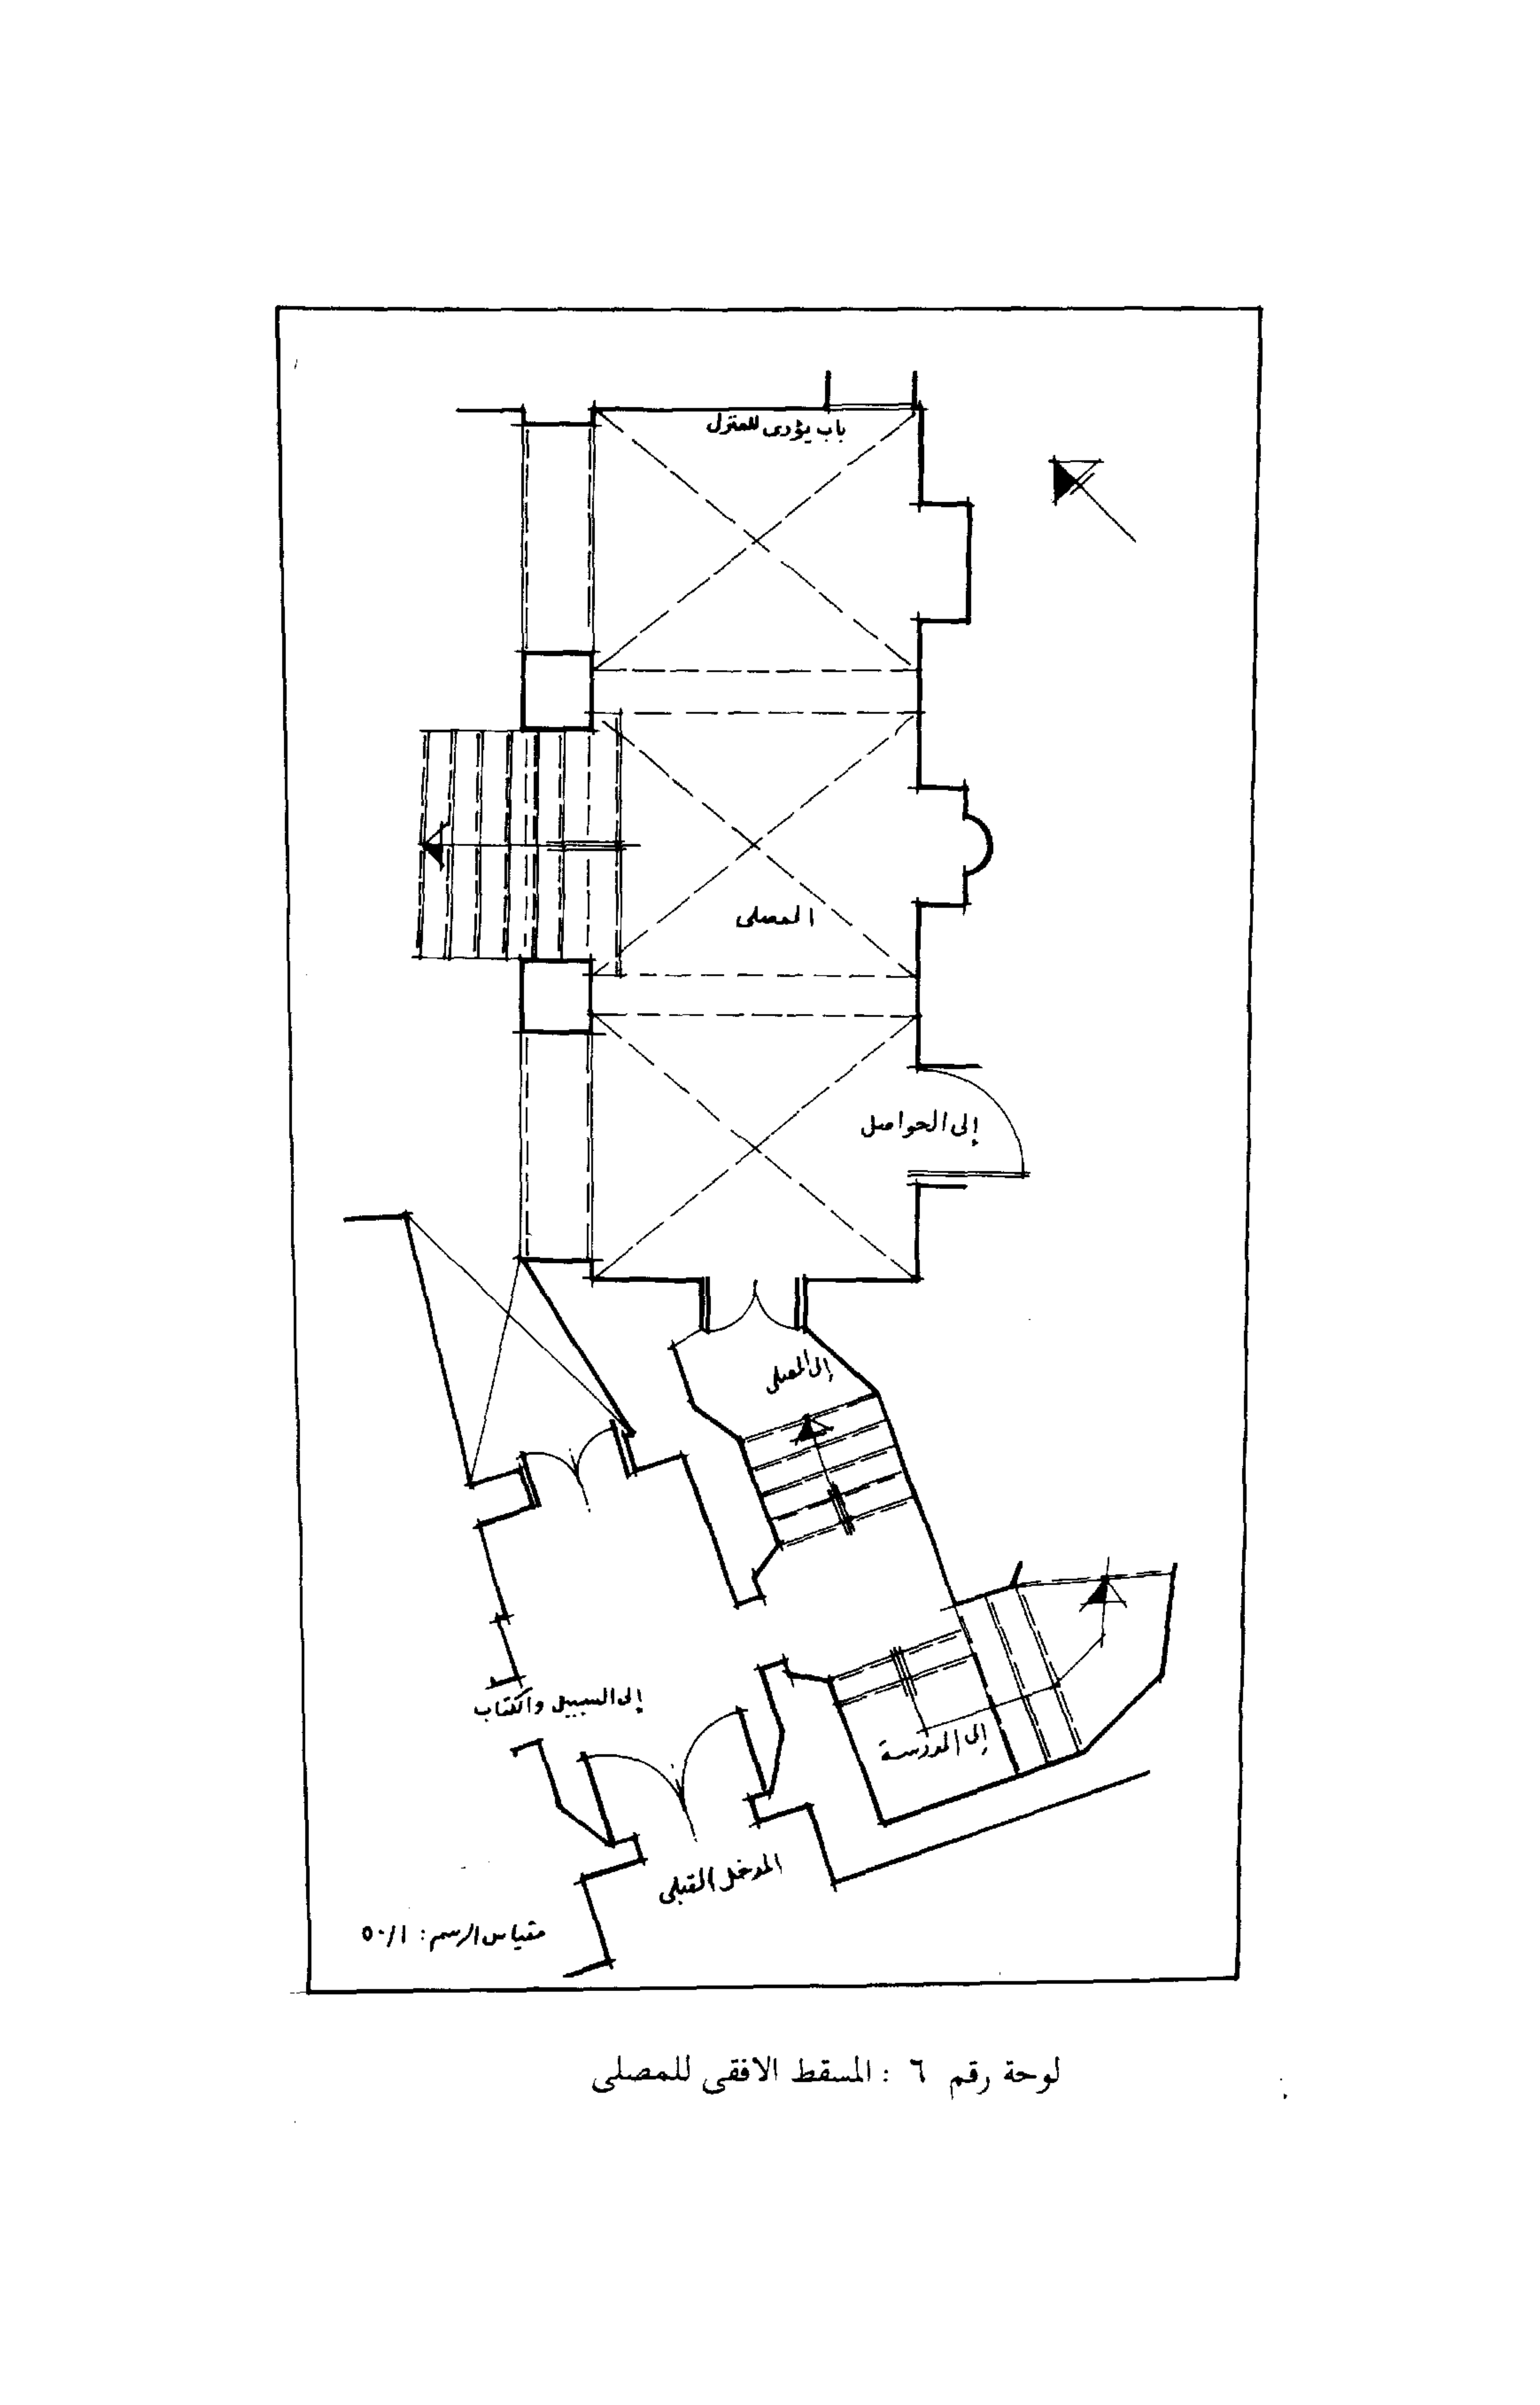 باب يؤدى للمنزل
المصلى
إلى الحواصل
إلى المصلى
إلى السبيل والكتاب
إلى المدرسة
المدخل القبلى
مقياس الرسم: ٥٠/١
لوحة رقم ٦ : المسقط الافقى للمصلى